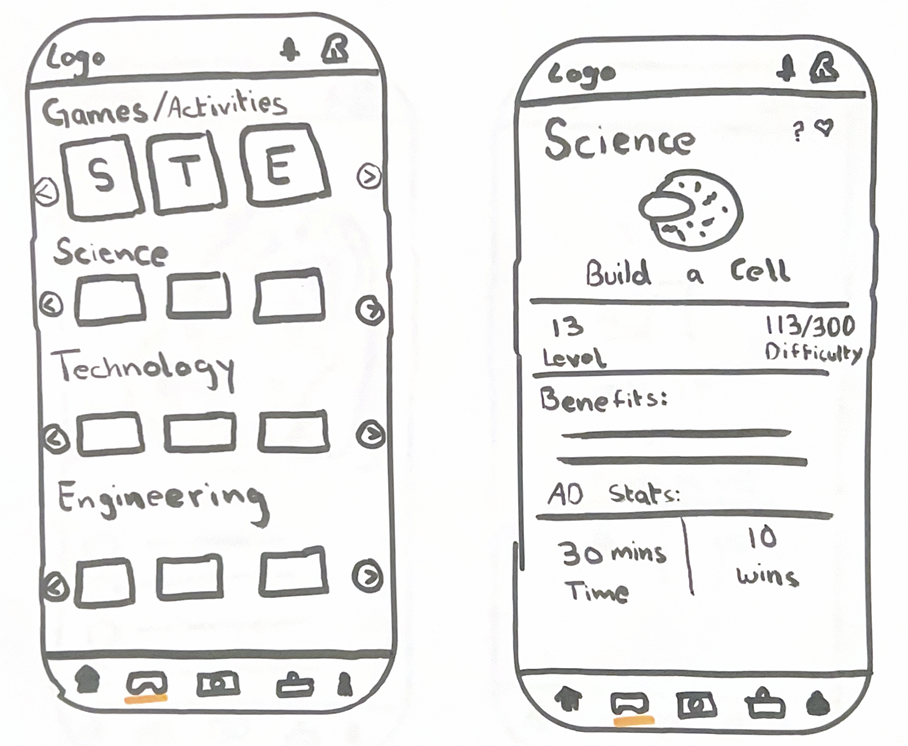 Logo
Games/Activities
S T E
Science
Technology
Engineering
Logo
Science
?
Build a Cell
13 113/300
Level Difficulty
Benefits:
AD Stats:
30 mins 10
Time wins